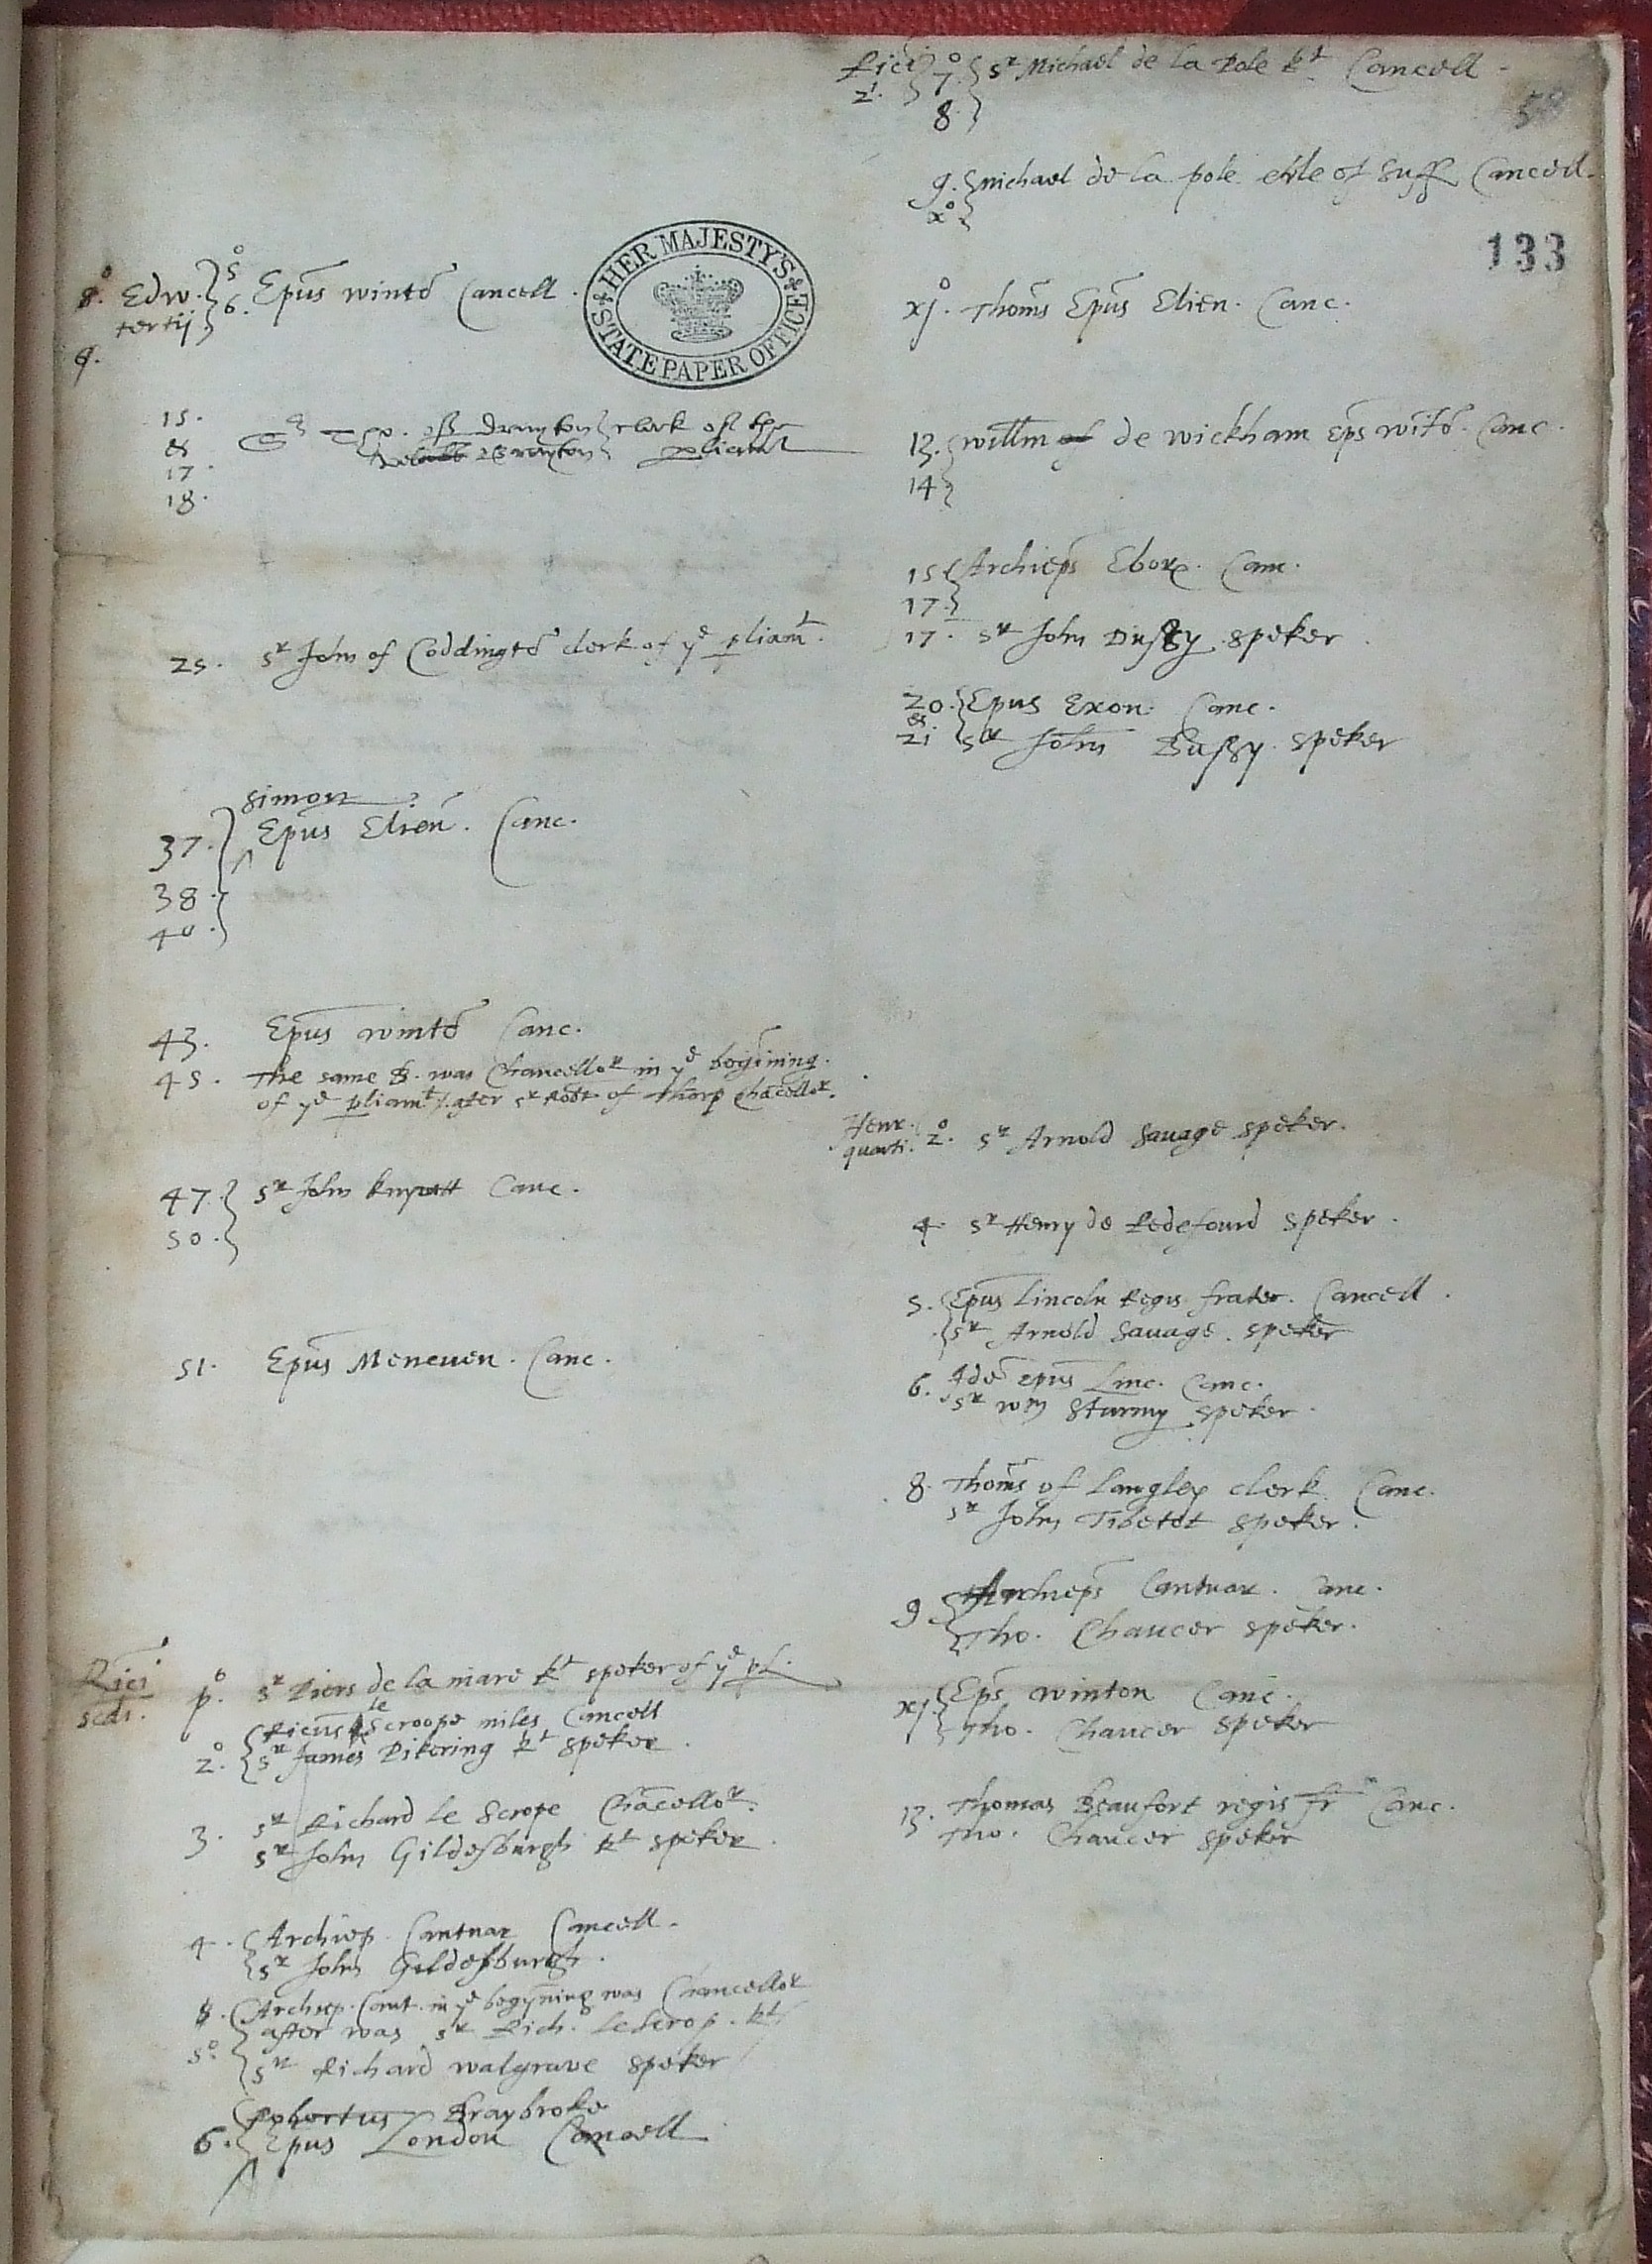 8.° Edw. 5°
tertij 6. Epūs wintō Cancell.
9.
HER MAJESTY'S STATE PAPER OFFICE
15.
&
17.
18.
Sr Tho. of Drayton clerk of the
Drayton pliamt
25. Sr John of Coddingtō clerk of ye pliamt.
Simon
37. Epūs Elien. Canc.
38.
40.
43. Epus wintō Canc.
45. The same B. was Chancellor in ye begīning.
of ye pliamt/. after Sr Robt of Thorp Chācellor.
47. Sr John knyvett Canc.
50.
51. Epūs Meneuen. Canc.
Rici scdi.
p° Sr Piers de la mare kt speker of ye pl.
le
2° Ricus Scroope miles Cancell
Sr James Pikering kt speker.
3. Sr Richard le Scrope Chācellor.
Sr John Gildesburgh kt speker
4. Archiep. Cantuar Cancell.
Sr John Gildesburgh.
5. Archiep. Cant. in ye begyning was Chancellor
after was Sr Rich. le Scrop. kt
5° Sr Richard walgrave speker
Robertus Braybroke
6. Epus London Cancell
Rici 2i. 7° Sr Michael de la Pole kt Cancell.
8.
58
9. michael de la pole erle of Suff Cancell.
x°
133
xj° Thoms Epus Elien. Canc.
13. willm of de wickham eps wintō. Canc.
14
15 Archieps Ebor. Canc.
17.
17. Sr John Bussy speker.
20. Epus Exon. Canc.
&
21 Sr John Bussy speker
Henr. quarti. 2° Sr Arnold Savage speker.
4. Sr Henry de Redefourd speker.
5. Epus Lincoln Regis frater. Cancell.
Sr Arnold Savage. speker
6. Idē epus Linc. Canc.
Sr wm Sturmy speker.
8. Thoms of Langley clerk. Canc.
Sr John Tibetot speker.
9. Archieps Cantuar. Canc.
Tho. Chaucer speker.
xj. Eps winton Canc.
Tho. Chaucer speker
13. Thomas Beaufort regis fr Canc.
Tho. Chaucer speker